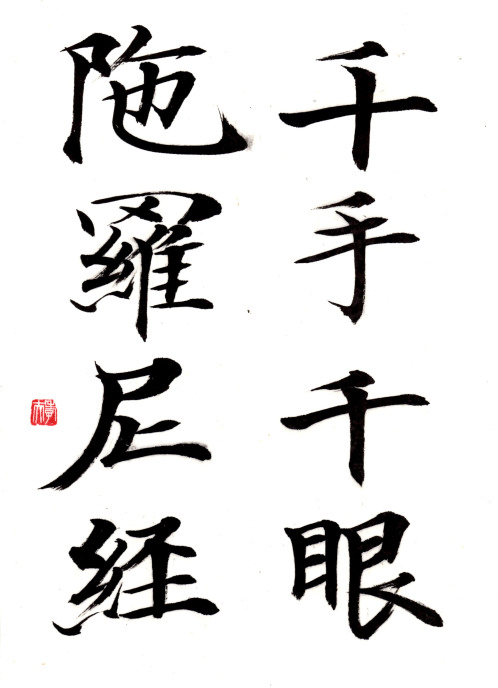 千手千眼
陁羅尼経